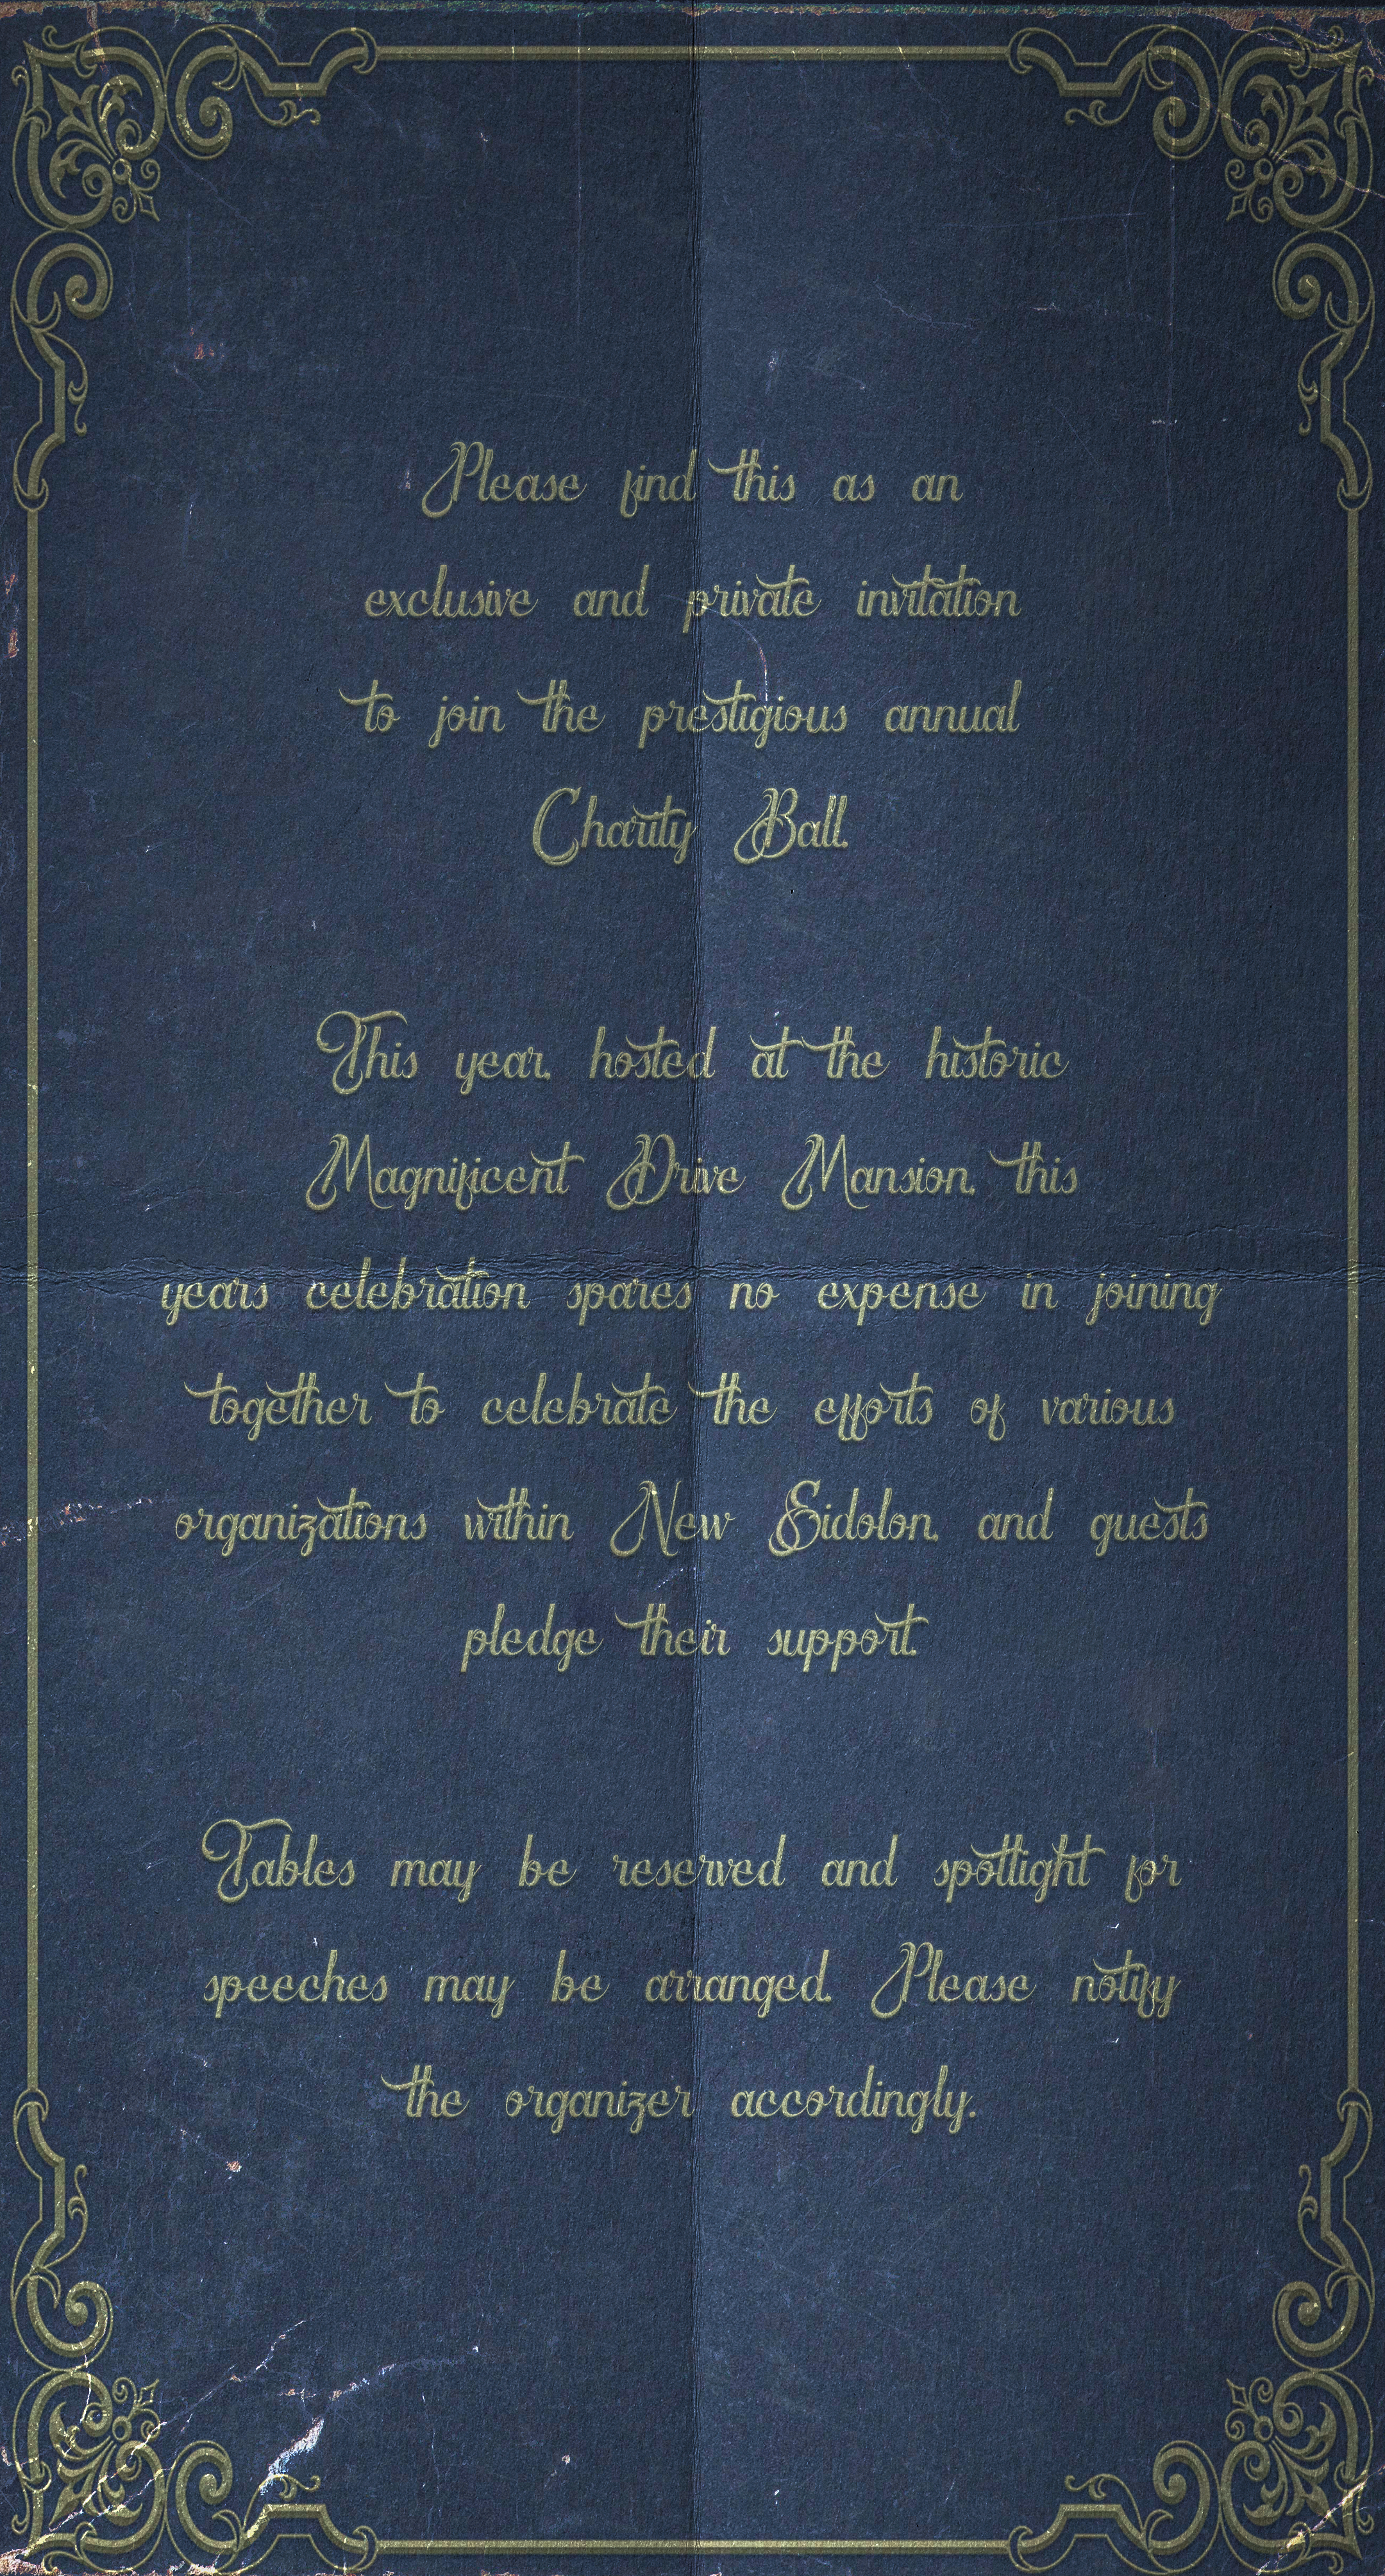 Please find this as an
exclusive and private invitation
to join the prestigious annual
Charity Ball.
This year, hosted at the historic
Magnificent Drive Mansion, this
years celebration spares no expense in joining
together to celebrate the efforts of various
organizations within New Eidolon, and guests
pledge their support.
Tables may be reserved and spotlight for
speeches may be arranged. Please notify
the organizer accordingly.